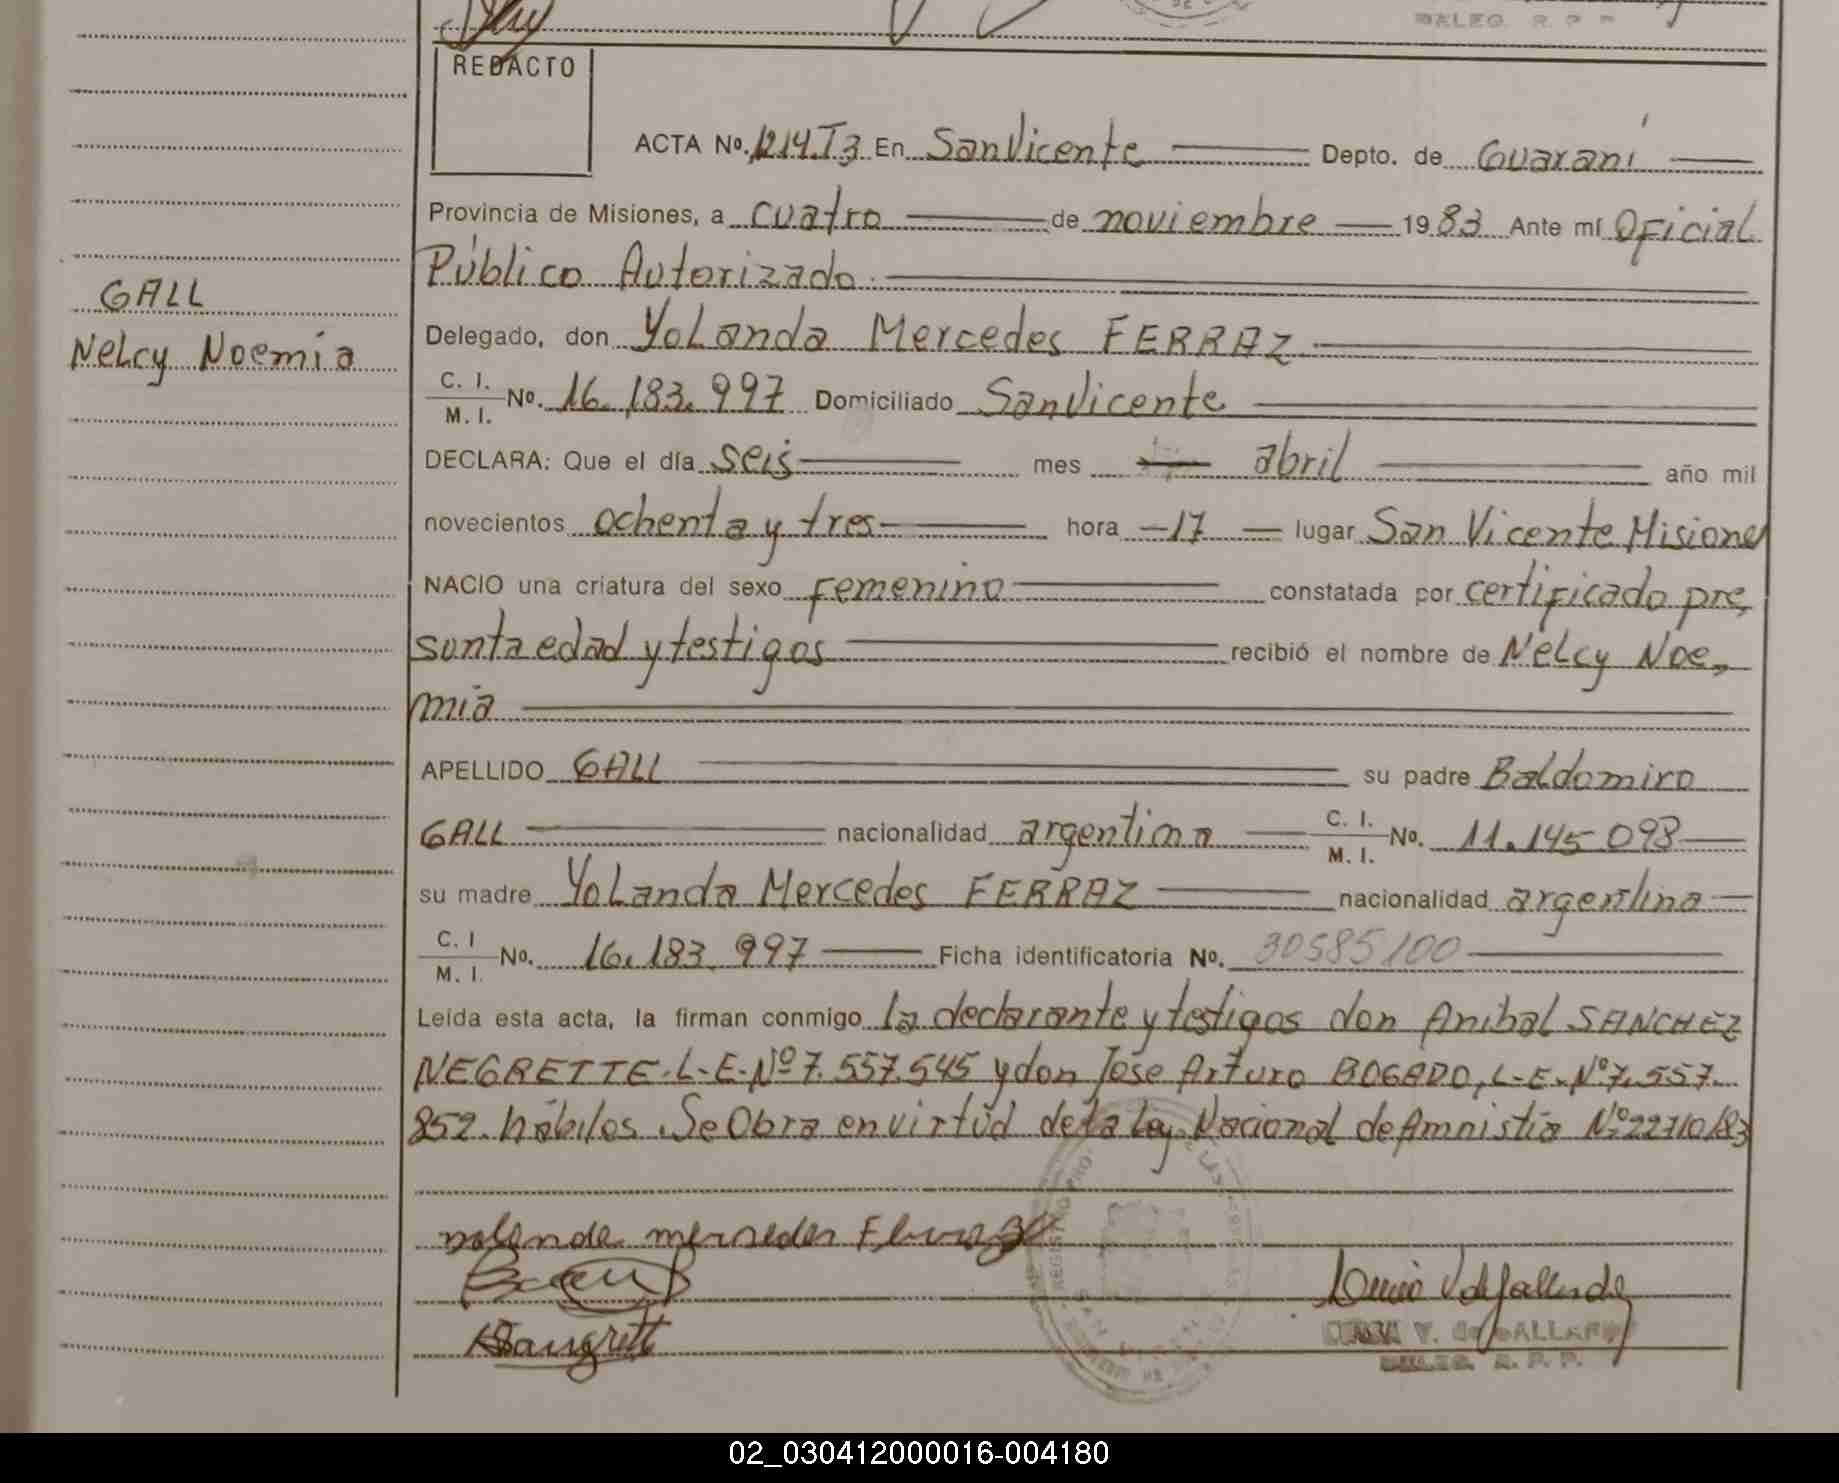 BALEG. R. P. P.
REDACTO
ACTA No. 1214.T3 En San Vicente Depto. de Guaraní
Provincia de Misiones, a cuatro de noviembre 1983 Ante mí Oficial
Público Autorizado
GALL
Nelcy Noemia
Delegado, don Yolanda Mercedes FERRAZ
C. I. M. I. No. 16.183.997 Domiciliado San Vicente
DECLARA: Que el día seis mes abril año mil
novecientos ochenta y tres hora -17 lugar San Vicente Misiones
NACIO una criatura del sexo femenino constatada por certificado pre,
sunta edad y testigos recibió el nombre de Nelcy Noe,
mia
APELLIDO GALL su padre Baldomiro
GALL nacionalidad argentina C. I. M. I. No. 11.145.098
su madre Yolanda Mercedes FERRAZ nacionalidad argentina
C. I M. I. No. 16.183.997 Ficha identificatoria No. 30585100
Leida esta acta, la firman conmigo la declarante y testigos don Anibal SANCHEZ
NEGRETTE.L-E-Nº7.557.545 y don Jose Arturo BOGADO, L-E-Nº7.557.
852. hábiles. Se Obra en virtúd de la Ley Nacional de Amnistia Nº22710/83
V. de GALLARDO
R. P. P.
02_030412000016-004180